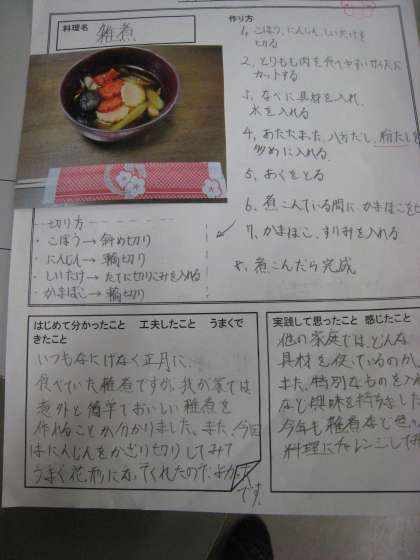 料理名 雑煮
作り方
1、ごぼう、にんじん、しいたけを
切る
2、とりもも肉を食べやすいサイズに
カットする
3、なべに具材を入れ、
水を入れる
4、あたたまったら、八方だし、
多めに入れる
5、あくをとる
6、煮こんでいる間に、かまぼこを
7、かまぼこ、すりみを入れる
8、煮こんだら完成
切り方
・ごぼう→斜め切り
・にんじん→輪切り
・しいたけ→たてに切りこみを入れる
・かまぼこ→輪切り
はじめて分かったこと 工夫したこと うまくで
きたこと
いつもなにげなく正月に、
食べていた雑煮ですが、我が家では
意外と簡単でおいしい雑煮を
作れることが分かりました。また、今回
はにんじんをかざり切りしてみて
うまく花形になってくれたので、よかった
です。
実践して思ったこと 感じたこと
他の家庭では、どんな
具材を使っているのか、
また、特別なものを入
など興味を持ちました
今年も雑煮など
料理にチャレンジしてみ